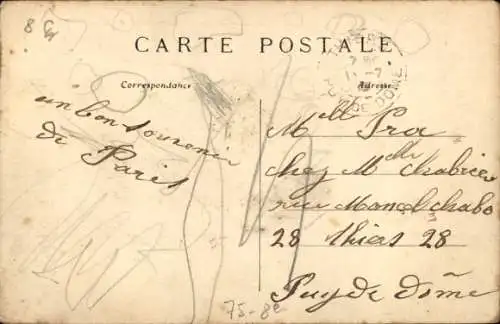 8
CARTE POSTALE
Correspondance
Adresse
un bon souvenir
de Paris
Mlle Pra
chez Mlle Chabrier
rue Manel Chabo
28 Thiers 28
Puy de Dôme
75-8e